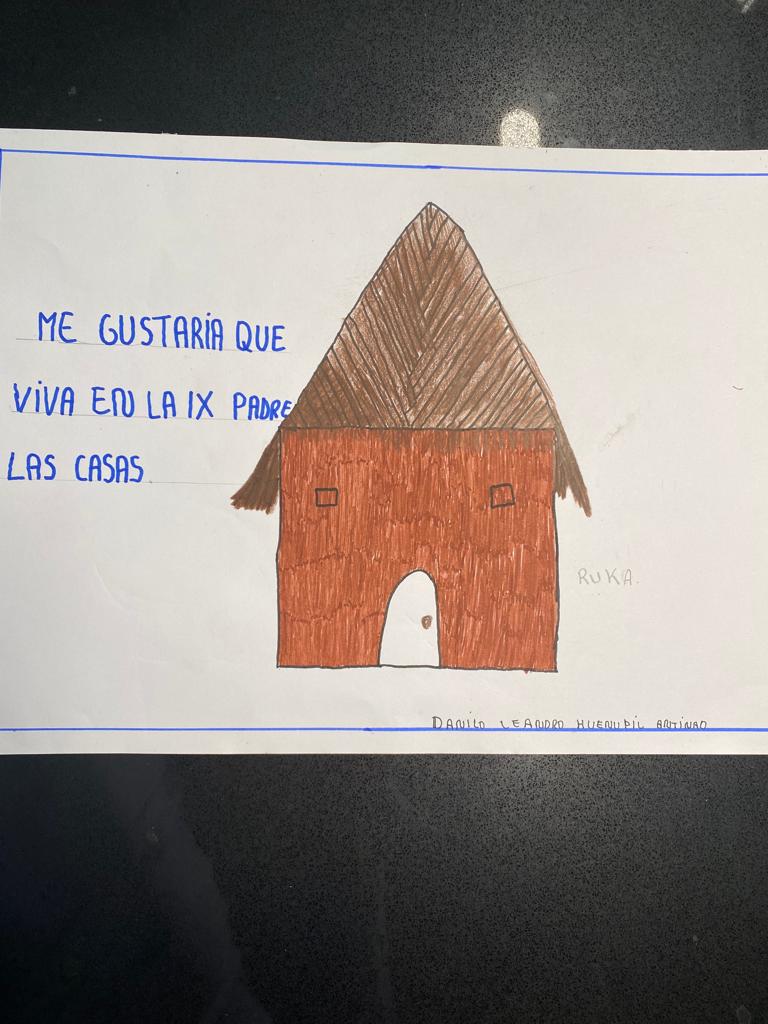 ME GUSTARÍA QUE
VIVA EN LA IX PADRE
LAS CASAS
RUKA.
DANILO LEANDRO HUENUPIL ANTINAO